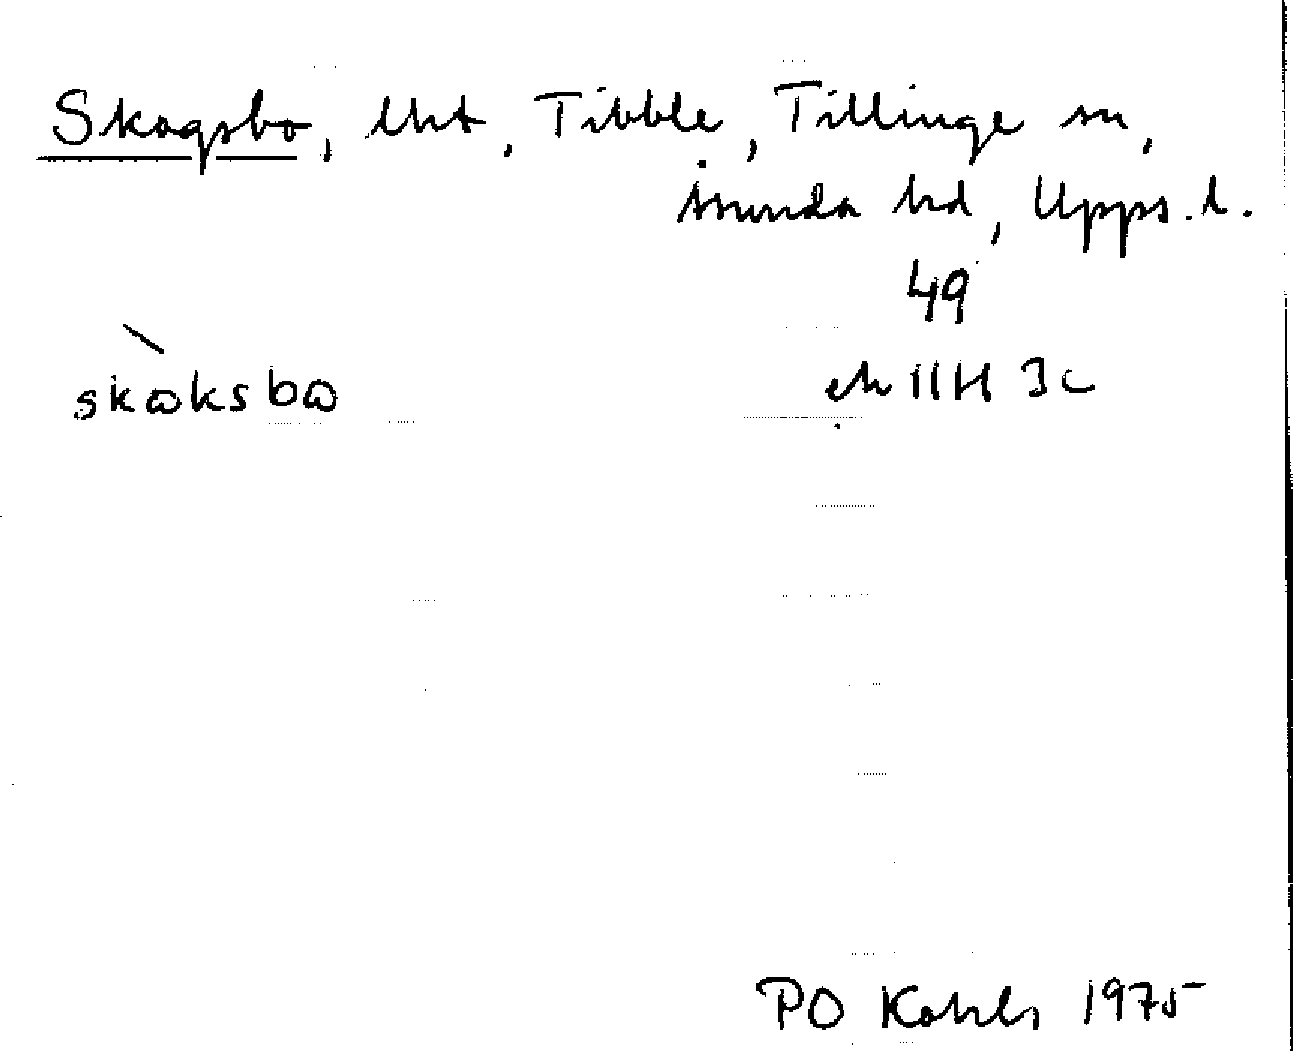 Skogsbo, lht, Tibble, Tillinge sn,
Åsunda hd, Upps. l.
49
skɷksbɷ
ek 11H 3c
PO Kohls 1975